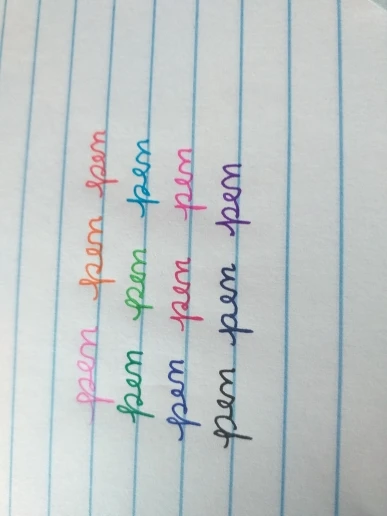 pen pen pen
pen pen pen
pen pen pen
pen pen pen